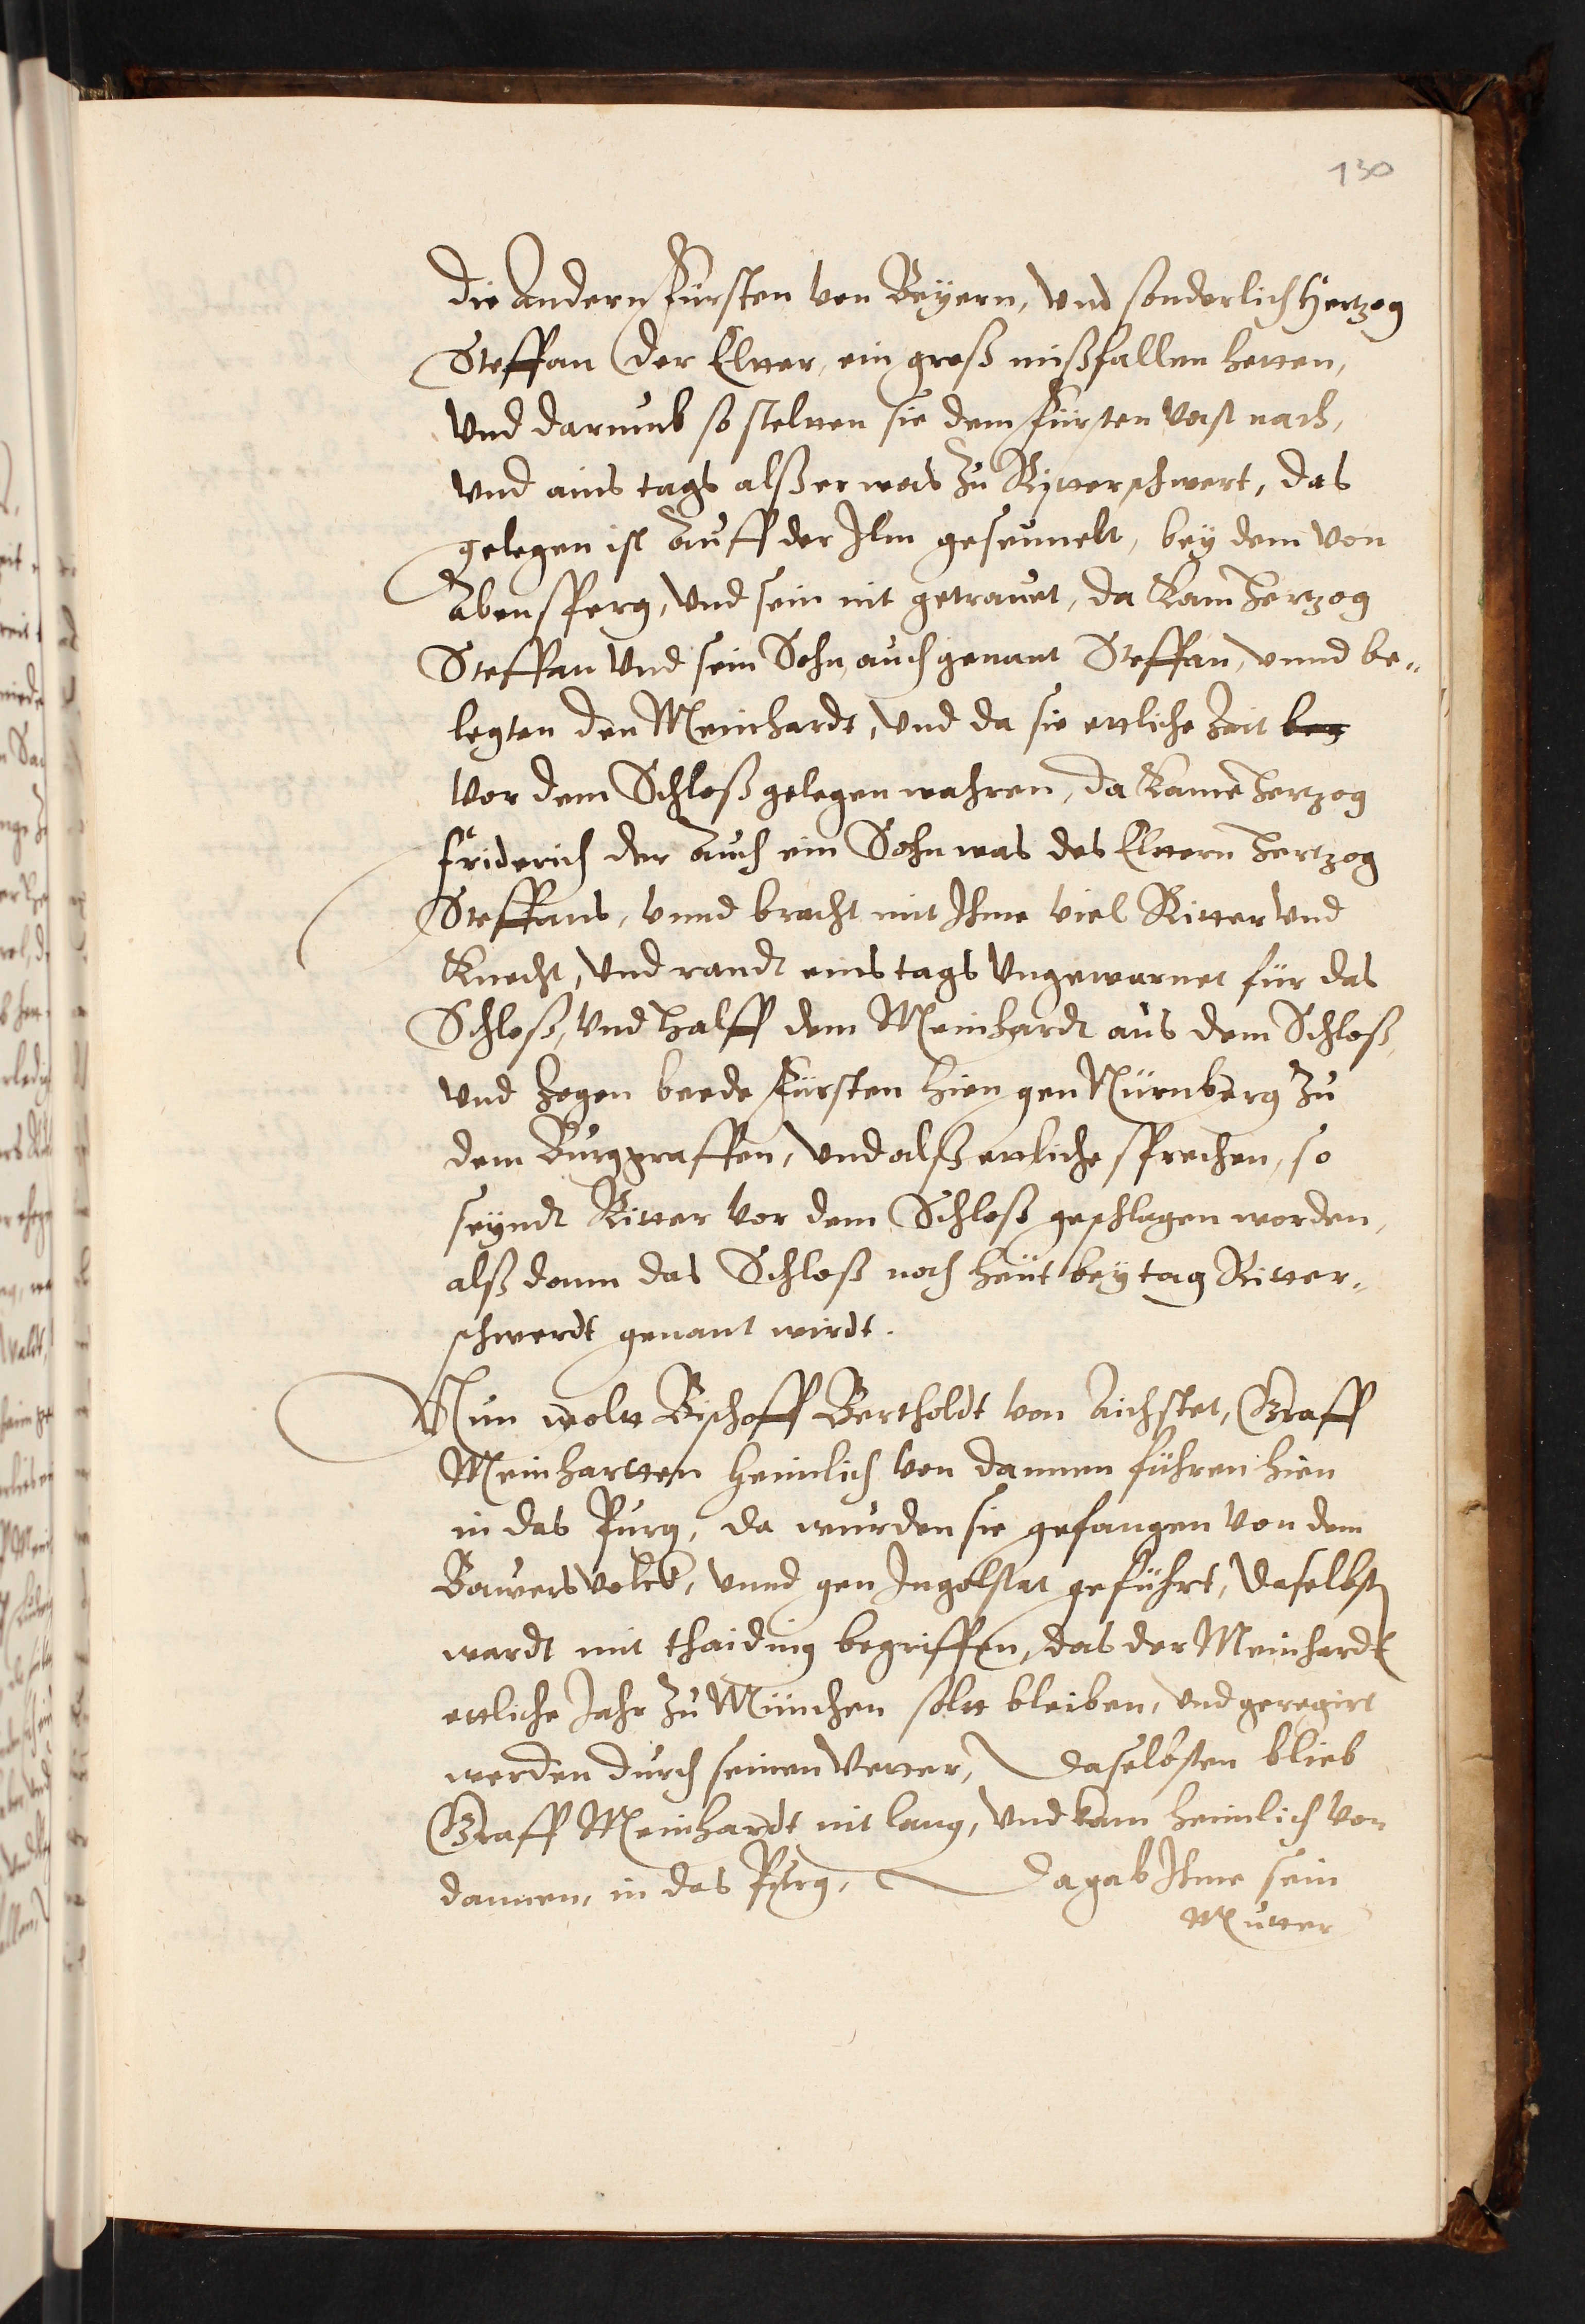 130
die Andern Fürsten von Beyern, vnd sonderlich Hertzog
Steffan der Eltter, ein groß mißfallen hetten,
vnd darumb so steltten sie dem Fürsten vast nach,
vnd ains tags alß er was zu Ritterschwert, das
gelegen ist Auff der Ilm, bey dem von
Abensperg, vnd sein nit getrauet, da kam Hertzog
Steffan vnd sein Sohn, auch genant Steffan, vnnd be„
legten den Meinhardt, vnd da sie ettliche Zeit beg
vor dem Schloß gelegen wahren, da kame Hertzog
Friderich der Auch ein Sohn was des Elttern Hertzog
Steffans, vnnd bracht mit Ihme viel Ritter vnd
Knecht, vnd randt eins tags vngewarnet für das
Schloß, vnd halff dem Meinhardt aus dem Schloß,
vnd Zogen beede Fürsten hien gen Nürnberg zu
dem Burggraffen, vnd alß ettliche sprechen, so
seyndt Ritter vor dem Schloß geschlagen worden,
alß dann das Schloß noch heüt bey tag Ritter„
schwerdt genant wirdt.
Nun wolt Bischoff Bertholdt von Aichstet, Graff
Meinhartten heimlich von dannen führen hien
in das Pürg, da wurden sie gefangen von dem
Bauersvolck, vnnd gen Ingolstat geführt, daselbst
wardt mit thaiding begriffen, das der Meinhardt
ettliche Jahr zu München soltt bleiben, vnd geregirt
werden durch seinen Vetter, daselbsten blieb
Graff Meinhardt nit lang, vnd kam heimlich von
dannen, in das Pürg, da gab Ihme sein
Mutter